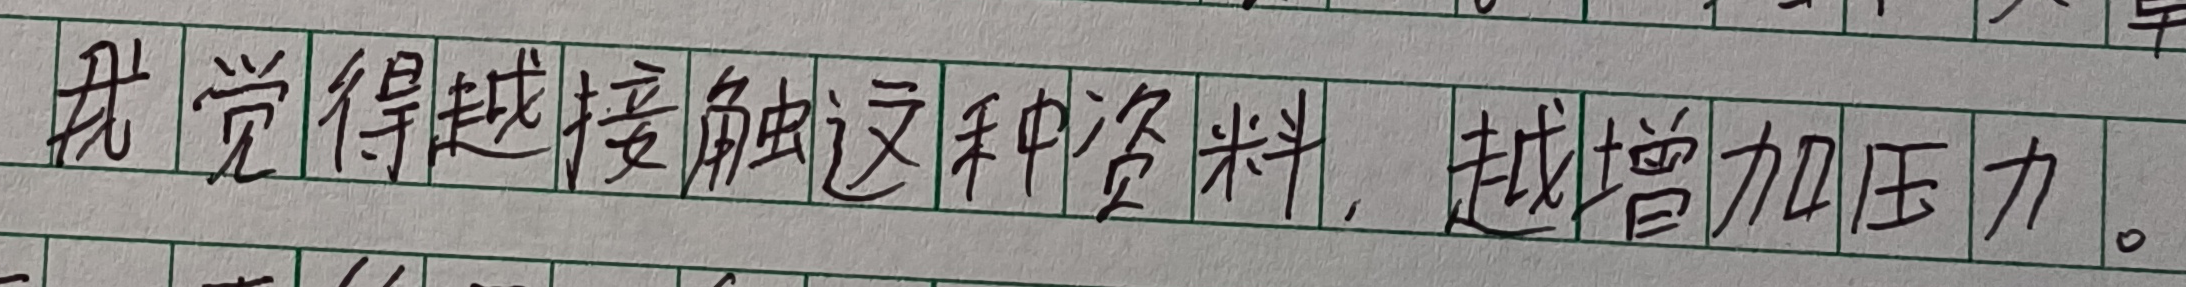 我觉得越接触这种资料，越增加压力。